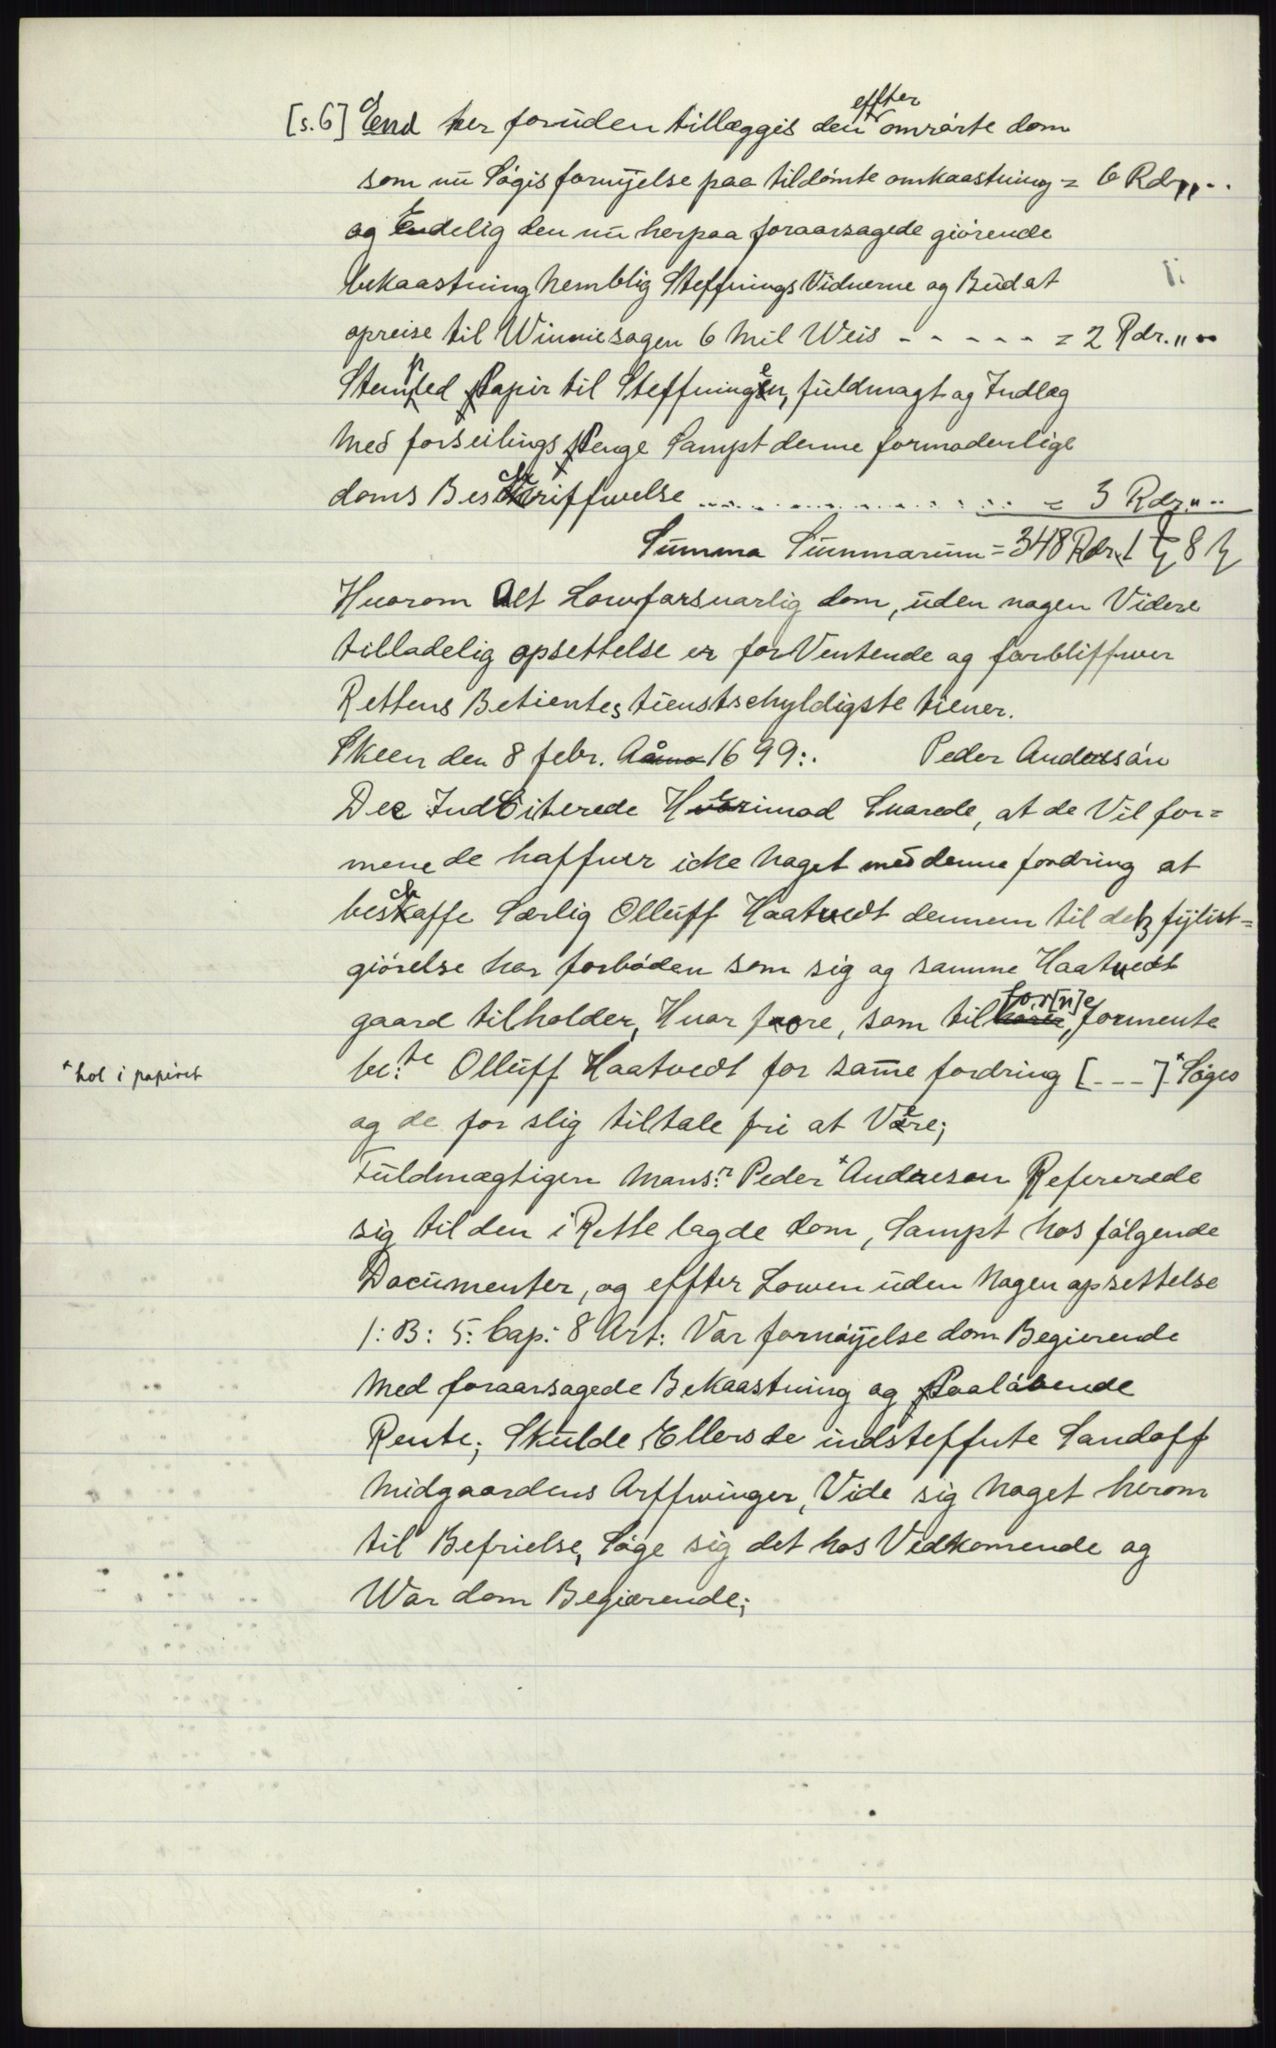 [s.6] End her foruden tillæggis den effter omrørte dom
som nu Søgis fornyelse paa tildømte omkaastning = 6 Rdr „ ..
og Endelig den nu herpaa foraarsagede giørende
bekaastning nemblig Steffnings Vidnerne og Bud at
opreise til Winniesogen 6 Mil Weis - - - - - = 2 Rdr. „ ..
Stemped Papir til Steffningen, fuldmagt og Indlæg
Med forseilings Penge Sampt denne formodenlige
doms Beschriffwelse .................. = 3 Rdr „ ..
Summa Summarum = 348 Rdr. 1 8
Huorom Alt Lowforsuarlig dom, uden nogen Videre
tilladelig opsettelse er forVentende og forbliffwer
Rettens Betientes tienstschyldigste tiener.
Skeen den 8 febr. Aåno 1699:. Peder Anderssøn
Dee IndCiterede Herimod Suarede, at de Vil for=
mene de haffuer icke Noget med denne fordring at
beschaffe Særlig Olluff Haatvedt dennem til detz fyllist=
giørelse har forbøden som sig og samme Haatvedt
gaard tilholder, Huor fore, som tilfor[n]e, formente
be:te Olluff Haatvedt for same fordring [---]* Søges
og de for slig tiltale fri at Være;
*hol i papiret
Fuldmægtigen Mons:r Peder Andersen Refererede
sig til den i Rette lagde dom, Sampt hos følgende
Documenter, og effter Lowen uden Nogen opsettelse
1: B: 5: Cap: 8 Art: Var fornøyelse dom Begierende
Med foraarsagede Bekaastning og Paaløbende
Rente; Skulde Ellers de indsteffnte Sandoff
Midgaardens Arffwinger, Vide sig Noget herom
til Befrielse, Søge sig det hos Vedkomende og
War dom Begiærende;